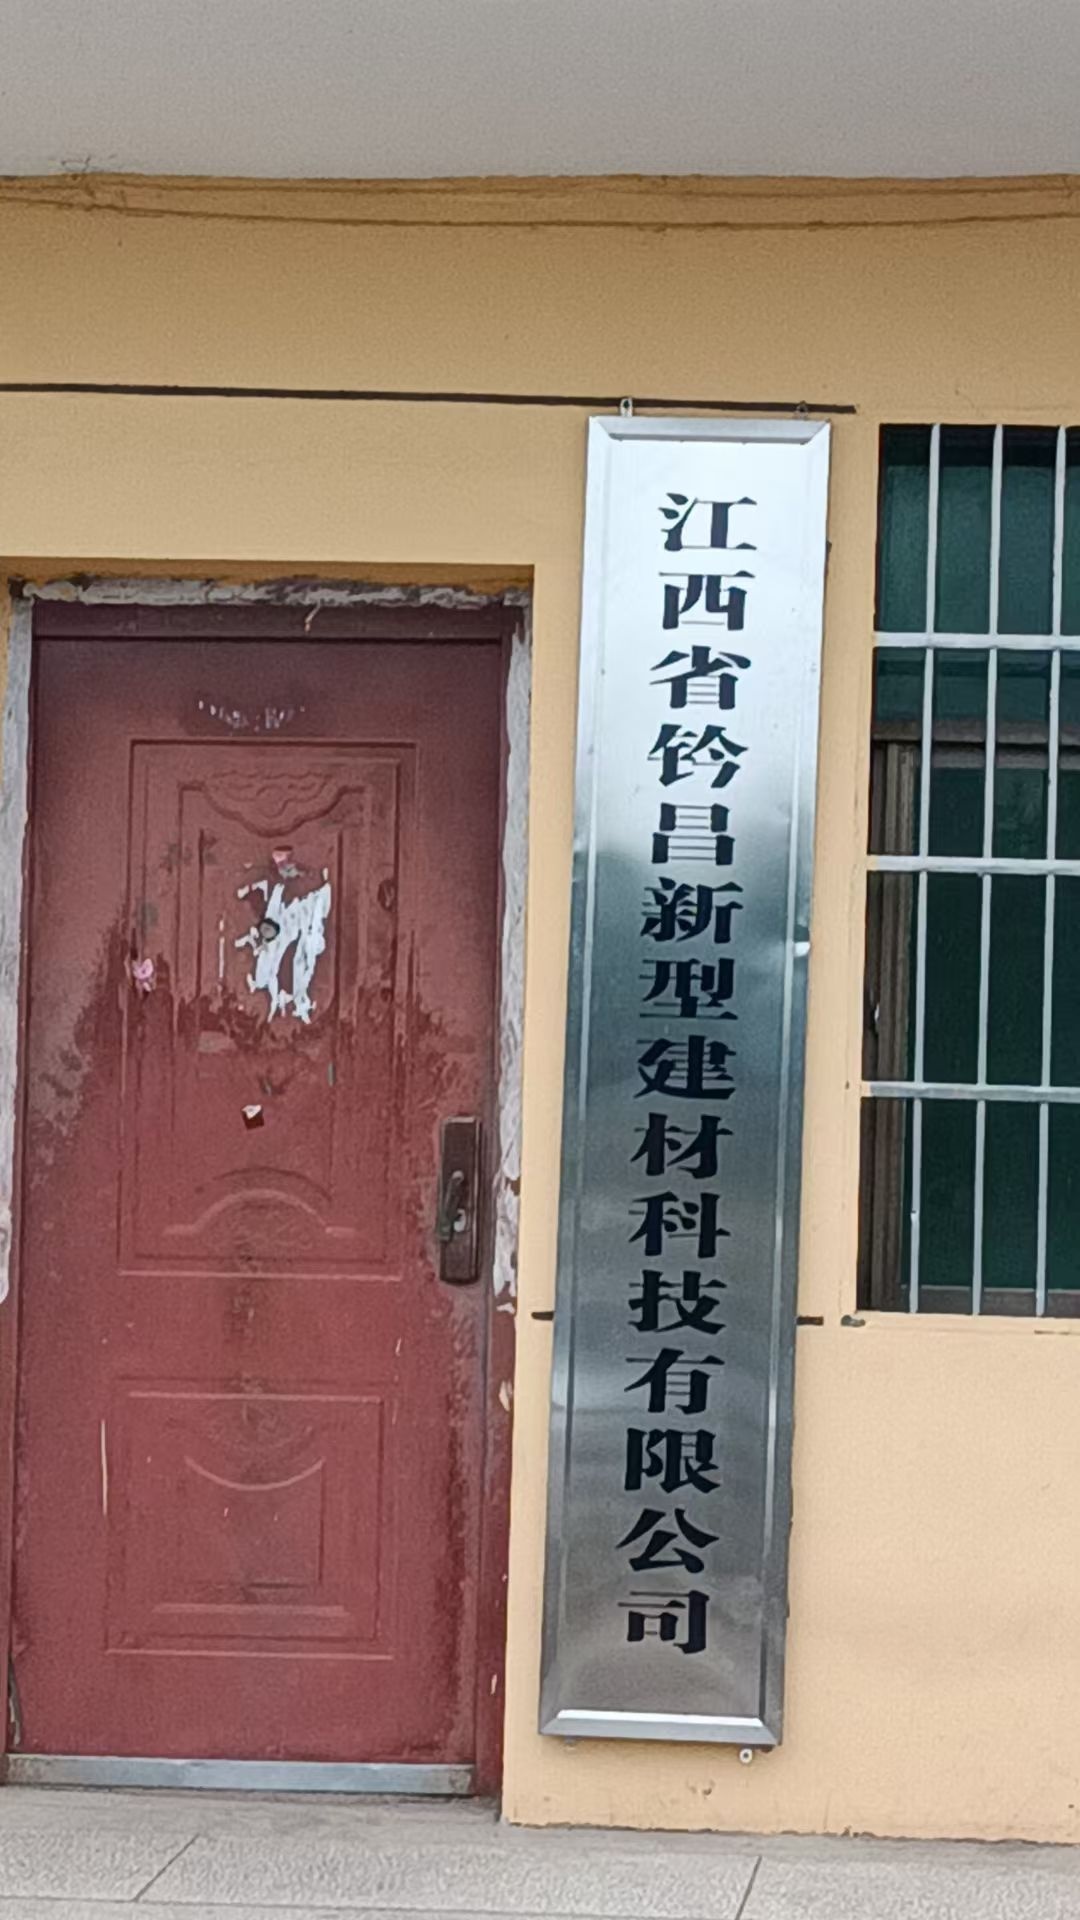 江西省钤昌新型建材科技有限公司